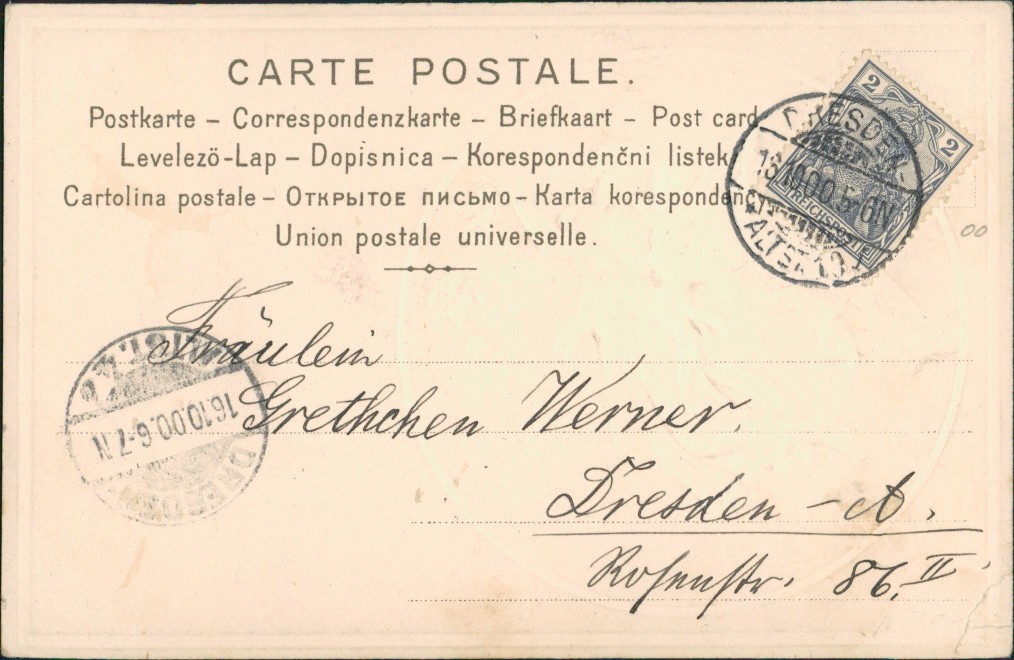 CARTE POSTALE.
Postkarte – Correspondenzkarte – Briefkaart – Post card
Levelezö-Lap – Dopisnica – Korespondenční listek
Cartolina postale – ОТКРЫТОЕ ПИСЬМО – Karta korespondenc
Union postale universelle.
2
2
REICHSPOST
DRESDEN-
16.10.00.5-6N
ALTST. 13
00
Fräulein
Grethchen Werner.
Dresden – A.
Rosenstr. 86. II
16.10.00.6-7N
DRESDEN